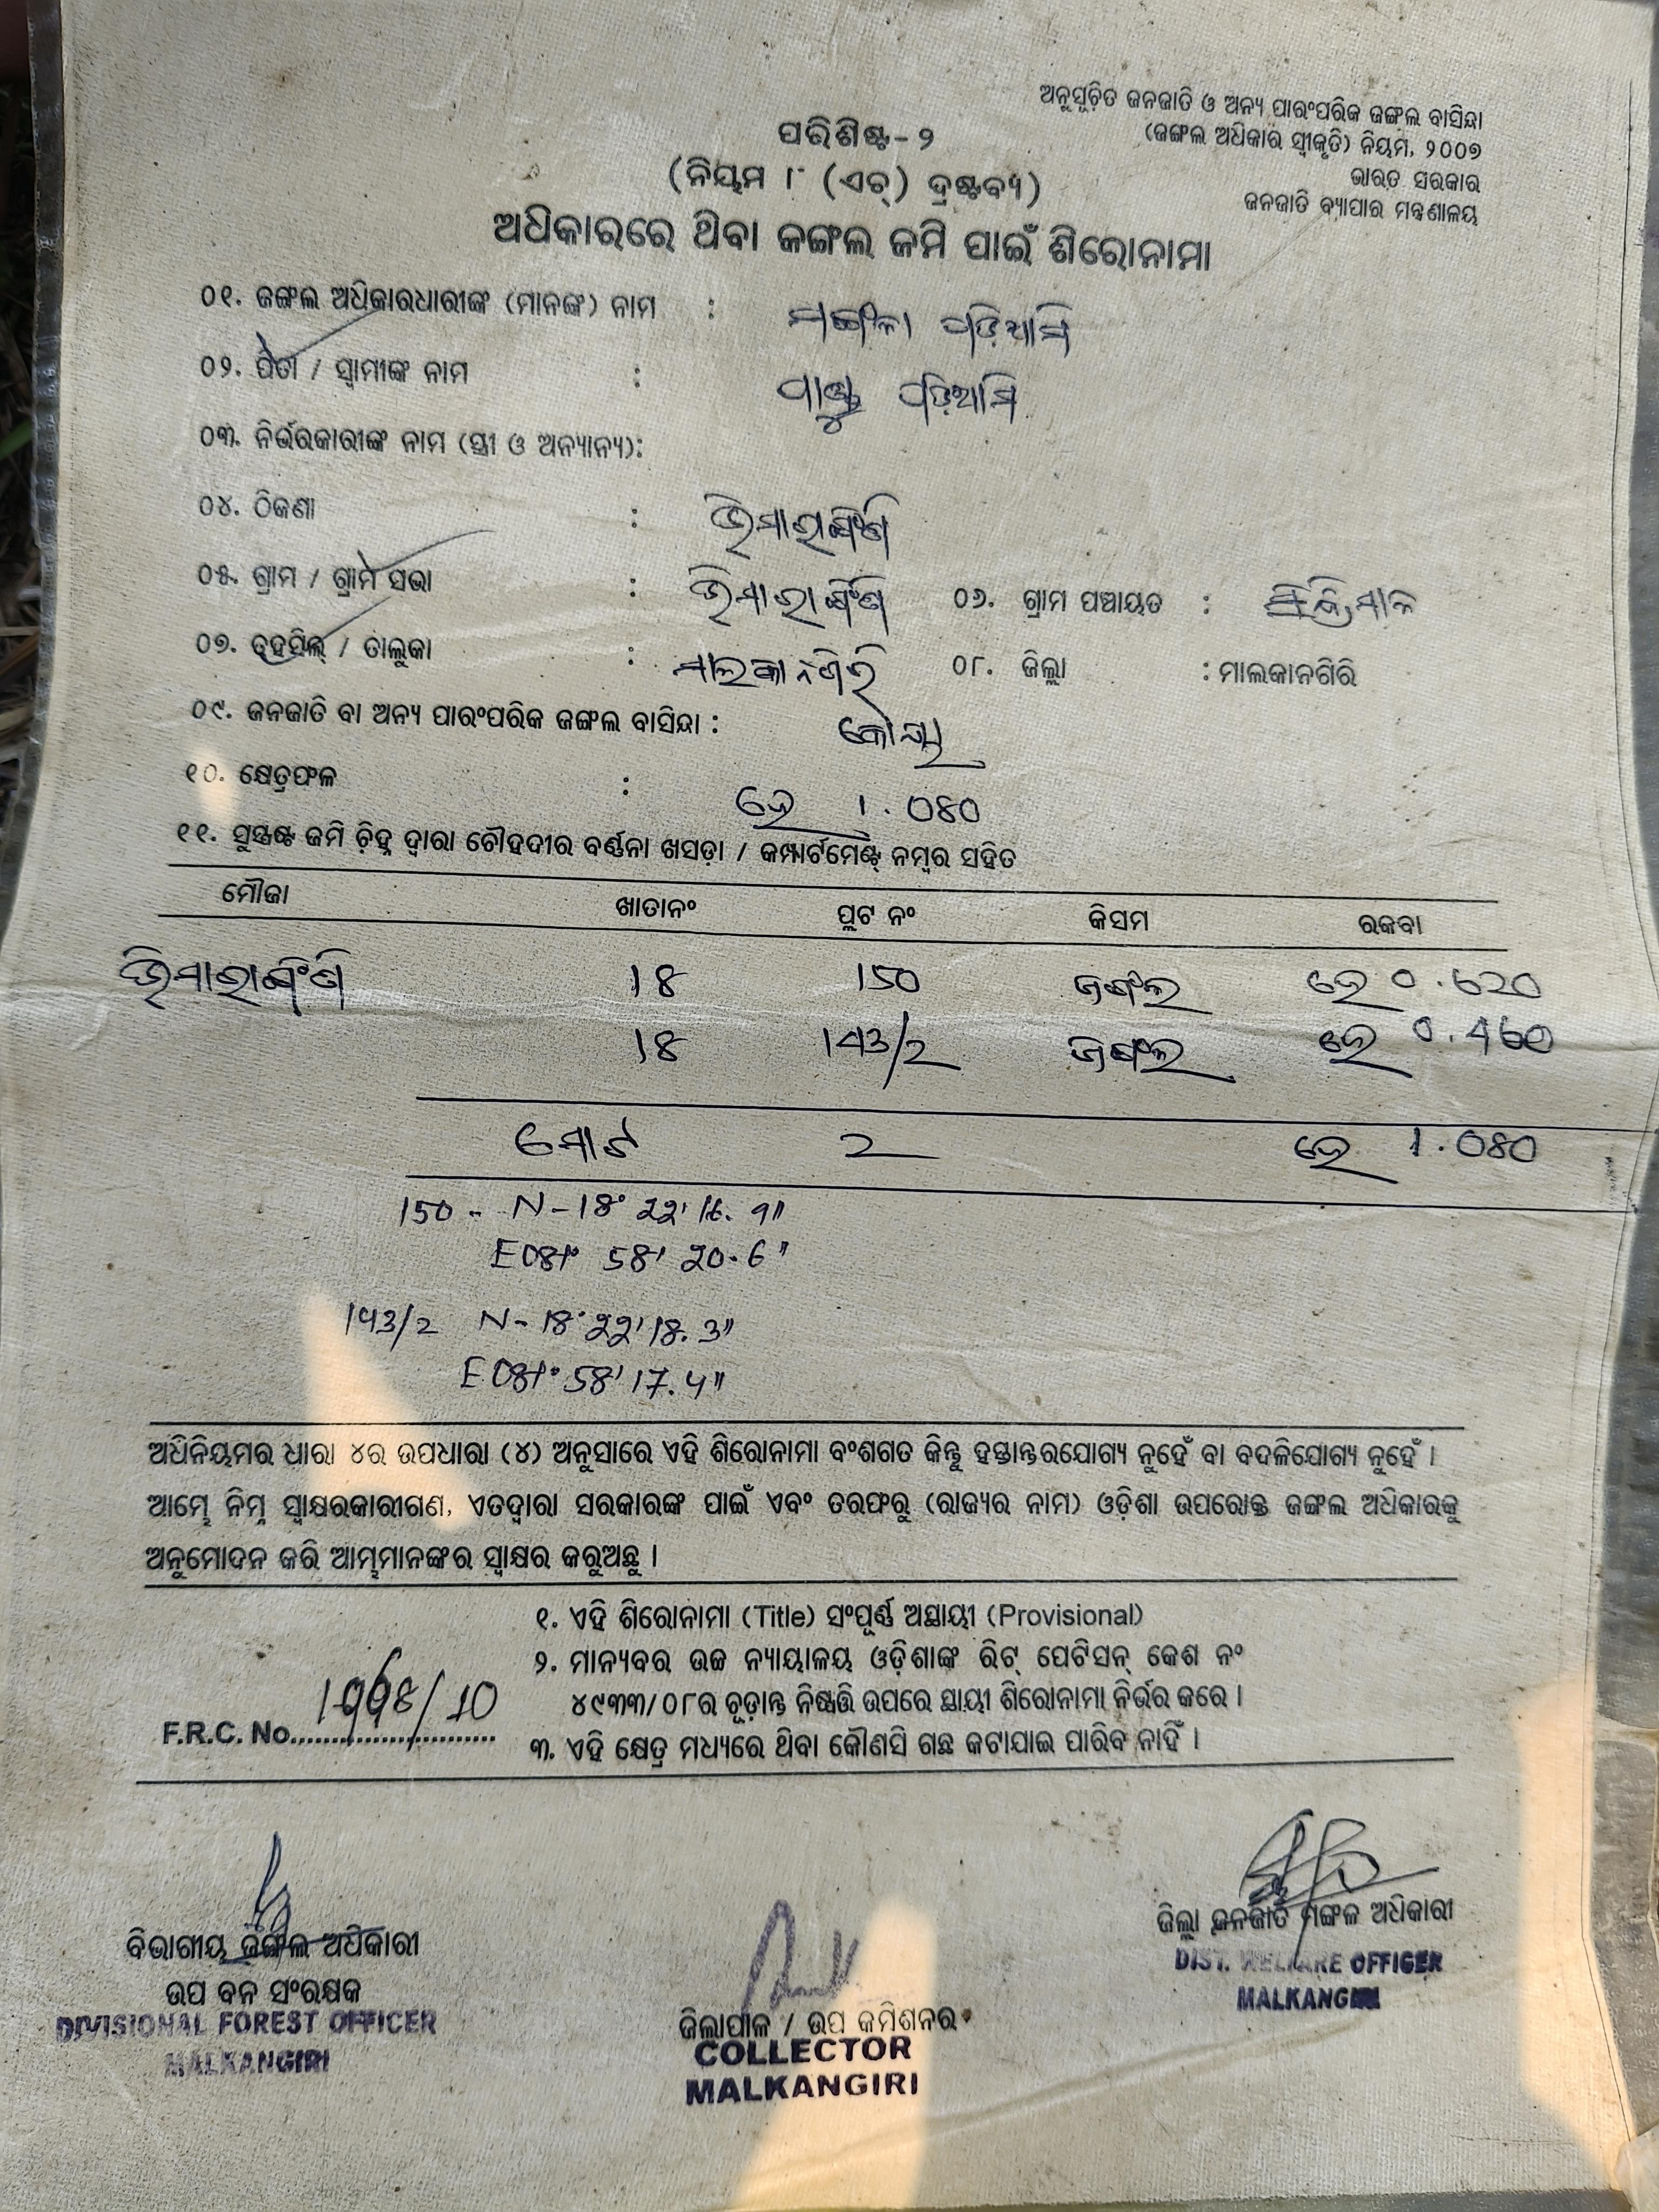 ଅନୁସୂଚିତ ଜନଜାତି ଓ ଅନ୍ୟ ପାରଂପରିକ ଜଙ୍ଗଲ ବାସିନ୍ଦା
(ଜଙ୍ଗଲ ଅଧିକାର ସ୍ୱୀକୃତି) ନିୟମ, ୨୦୦୭
ଭାରତ ସରକାର
ଜନଜାତି ବ୍ୟାପାର ମନ୍ତ୍ରଣାଳୟ
ପରିଶିଷ୍ଟ-୨
(ନିୟମ ୮ (ଏଚ୍) ଦ୍ରଷ୍ଟବ୍ୟ)
ଅଧିକାରରେ ଥିବା ଜଙ୍ଗଲ ଜମି ପାଇଁ ଶିରୋନାମା
୦୧. ଜଙ୍ଗଲ ଅଧିକାରଧାରୀଙ୍କ (ମାନଙ୍କ) ନାମ : ପଡ଼ିଆମି
୦୨. ପିତା / ସ୍ୱାମୀଙ୍କ ନାମ : ପଡ଼ିଆମି
୦୩. ନିର୍ଭରକାରୀଙ୍କ ନାମ (ସ୍ତ୍ରୀ ଓ ଅନ୍ୟାନ୍ୟ):
୦୪. ଠିକଣା :
୦୫. ଗ୍ରାମ / ଗ୍ରାମ ସଭା : ୦୬. ଗ୍ରାମ ପଞ୍ଚାୟତ :
୦୭. ତହସିଲ୍ / ତାଲୁକା : ମାଲକାନଗିରି ୦୮. ଜିଲ୍ଲା : ମାଲକାନଗିରି
୦୯. ଜନଜାତି ବା ଅନ୍ୟ ପାରଂପରିକ ଜଙ୍ଗଲ ବାସିନ୍ଦା : କୋୟା
୧୦. କ୍ଷେତ୍ରଫଳ : ହେ 1.080
୧୧. ସୁସ୍ପଷ୍ଟ ଜମି ଚିହ୍ନ ଦ୍ୱାରା ଚୌହଦୀର ବର୍ଣ୍ଣନା ଖସଡ଼ା / କମ୍ପାର୍ଟମେଣ୍ଟ୍ ନମ୍ବର ସହିତ
ମୌଜା ଖାତାନଂ ପ୍ଲଟ ନଂ କିସମ ରକବା
18 150 ଜଙ୍ଗଲ ହେ 0.620
18 143/2 ଜଙ୍ଗଲ ହେ 0.460
ମୋଟ 2 ହେ 1.080
150 - N-18° 22' 16.9"
E081° 58' 20.6"
143/2 N-18° 22' 18.3"
E081° 58' 17.4"
ଅଧିନିୟମର ଧାରା ୪ର ଉପଧାରା (୪) ଅନୁସାରେ ଏହି ଶିରୋନାମା ବଂଶଗତ କିନ୍ତୁ ହସ୍ତାନ୍ତରଯୋଗ୍ୟ ନୁହେଁ ବା ବଦଳିଯୋଗ୍ୟ ନୁହେଁ ।
ଆମ୍ଭେ ନିମ୍ନ ସ୍ୱାକ୍ଷରକାରୀଗଣ, ଏତଦ୍ୱାରା ସରକାରଙ୍କ ପାଇଁ ଏବଂ ତରଫରୁ (ରାଜ୍ୟର ନାମ) ଓଡ଼ିଶା ଉପରୋକ୍ତ ଜଙ୍ଗଲ ଅଧିକାରକୁ
ଅନୁମୋଦନ କରି ଆମ୍ଭମାନଙ୍କର ସ୍ୱାକ୍ଷର କରୁଅଛୁ ।
୧. ଏହି ଶିରୋନାମା (Title) ସଂପୂର୍ଣ୍ଣ ଅସ୍ଥାୟୀ (Provisional)
୨. ମାନ୍ୟବର ଉଚ୍ଚ ନ୍ୟାୟାଳୟ ଓଡ଼ିଶାଙ୍କ ରିଟ୍ ପେଟିସନ୍ କେଶ ନଂ
୪୯୩୩/୦୮ର ଚୂଡ଼ାନ୍ତ ନିଷ୍ପତ୍ତି ଉପରେ ସ୍ଥାୟୀ ଶିରୋନାମା ନିର୍ଭର କରେ ।
F.R.C. No..........................
୩. ଏହି କ୍ଷେତ୍ର ମଧ୍ୟରେ ଥିବା କୌଣସି ଗଛ କଟାଯାଇ ପାରିବ ନାହିଁ ।
ବିଭାଗୀୟ ଜଙ୍ଗଲ ଅଧିକାରୀ
ଉପ ବନ ସଂରକ୍ଷକ
DIVISIONAL FOREST OFFICER
MALKANGIRI
ଜିଲ୍ଲାପାଳ / ଉପ କମିଶନର
COLLECTOR
MALKANGIRI
ଜିଲ୍ଲା ଜନଜାତି ମଙ୍ଗଳ ଅଧିକାରୀ
DIST. WELFARE OFFICER
MALKANGIRI